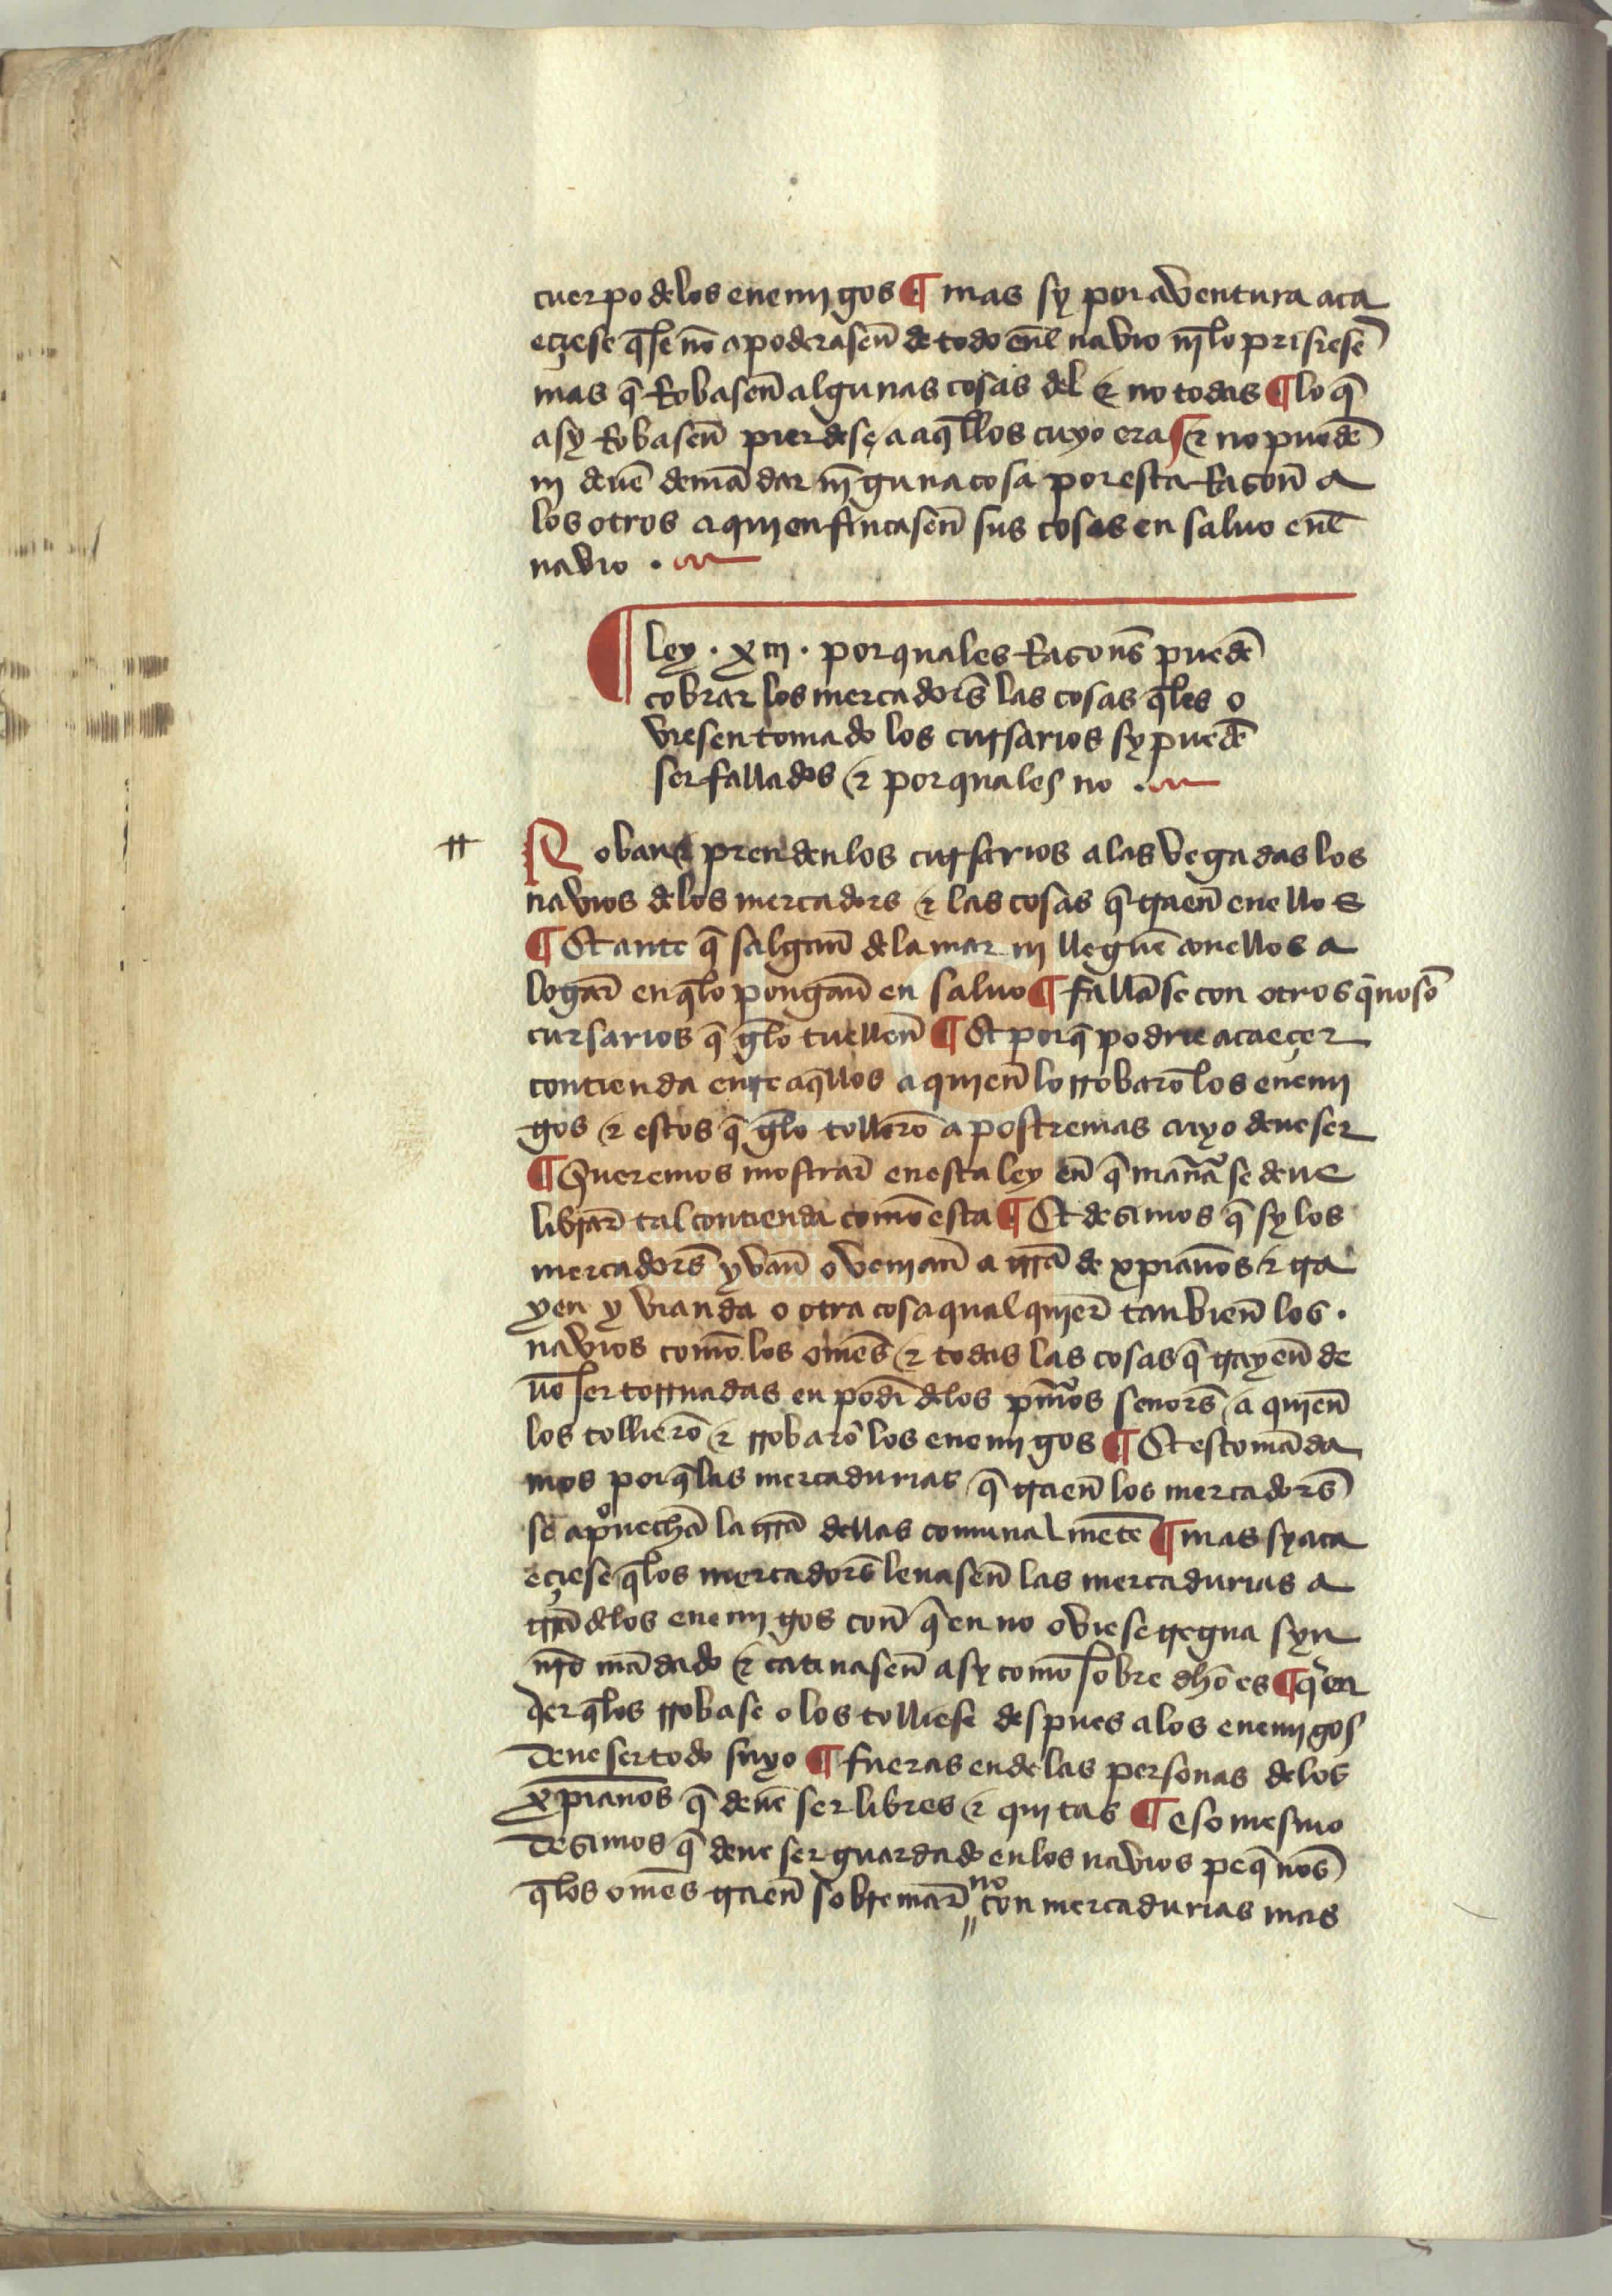 cuerpo delos enemigos ¶ mas sy por aventura aca
eçiese q̃ se nõ apoderaseñ de todo enl̃ navio nĩ lo prisiesẽ
mas q̃ Robaseñ algunas cosas del & no todas ¶ lo q̃
asy Robaseñ pierdese a aq̃llos cuyo era ¶ & no puedẽ
ni deuẽ demãdar nĩguna cosa por esta Rasoñ a
los otros aquien fincaseñ sus cosas en saluo enl̃
navio .
¶ Ley . xiij . por quales Rasoñs puedẽ
cobrar los mercador̃s las cosas q̃les o
viesen tomado los cursarios sy puedẽ
ser fallados & por quales no .
Roban & prenden los cursarios alas vegadas los
navios delos mercadors & las cosas q̃ traeñ enellos
¶ Et ante q̃ salgañ dela mar ni lleguẽ conellos a
logar̃ en q̃lo pongañ en saluo ¶ fallã se con otros q̃ no sõ
cursarios q̃ gelo tuelleñ ¶ Et porq̃ podrie acaeçer
contienda entre aq̃llos a quieñ lo rrobarõ los enemi
gos & estos q̃ gelo tollierõ a postremas cuyo deue ser
¶ Queremos mostrar̃ enesta ley eñ q̃ mañã se deue
librar̃ tal contienda comõ esta ¶ Et desimos q̃ sy los
mercador̃s yvañ o veniañ a trrã de xp̃ianos & tra
yen y vianda o otra cosa qual quier̃ tanbieñ los .
navios comõ los omẽs & todas las cosas q̃ trayeñ de
uẽ ser tornadas en poder̃ delos pm̃os señor̃s a quieñ
los tollierõ & rrobarõ los enemigos ¶ Et esto mãda
mos porq̃ las mercadurias q̃ traeñ los mercador̃s
se apouechã la trrã dellas comunal mẽte ¶ mas sy aca
eçiese q̃los mercador̃s leuaseñ las mercadurias a
trrã delos enemigos coñ q̃en no oviese tregua syn
nr̃o mãdado & catiuaseñ asy comõ sobre dh̃o es ¶ q̃en
q̃er q̃los rrobase o los tolliese despues alos enemigos
deue ser todo suyo ¶ fueras ende las personas delos
xp̃ianos q̃ deuẽ ser libres & quitas ¶ eso mesmo
desimos q̃ deue ser guardado enlos navios peq̃nos̃
q̃los omẽs traeñ sobre mar̃ no con mercadurias mas